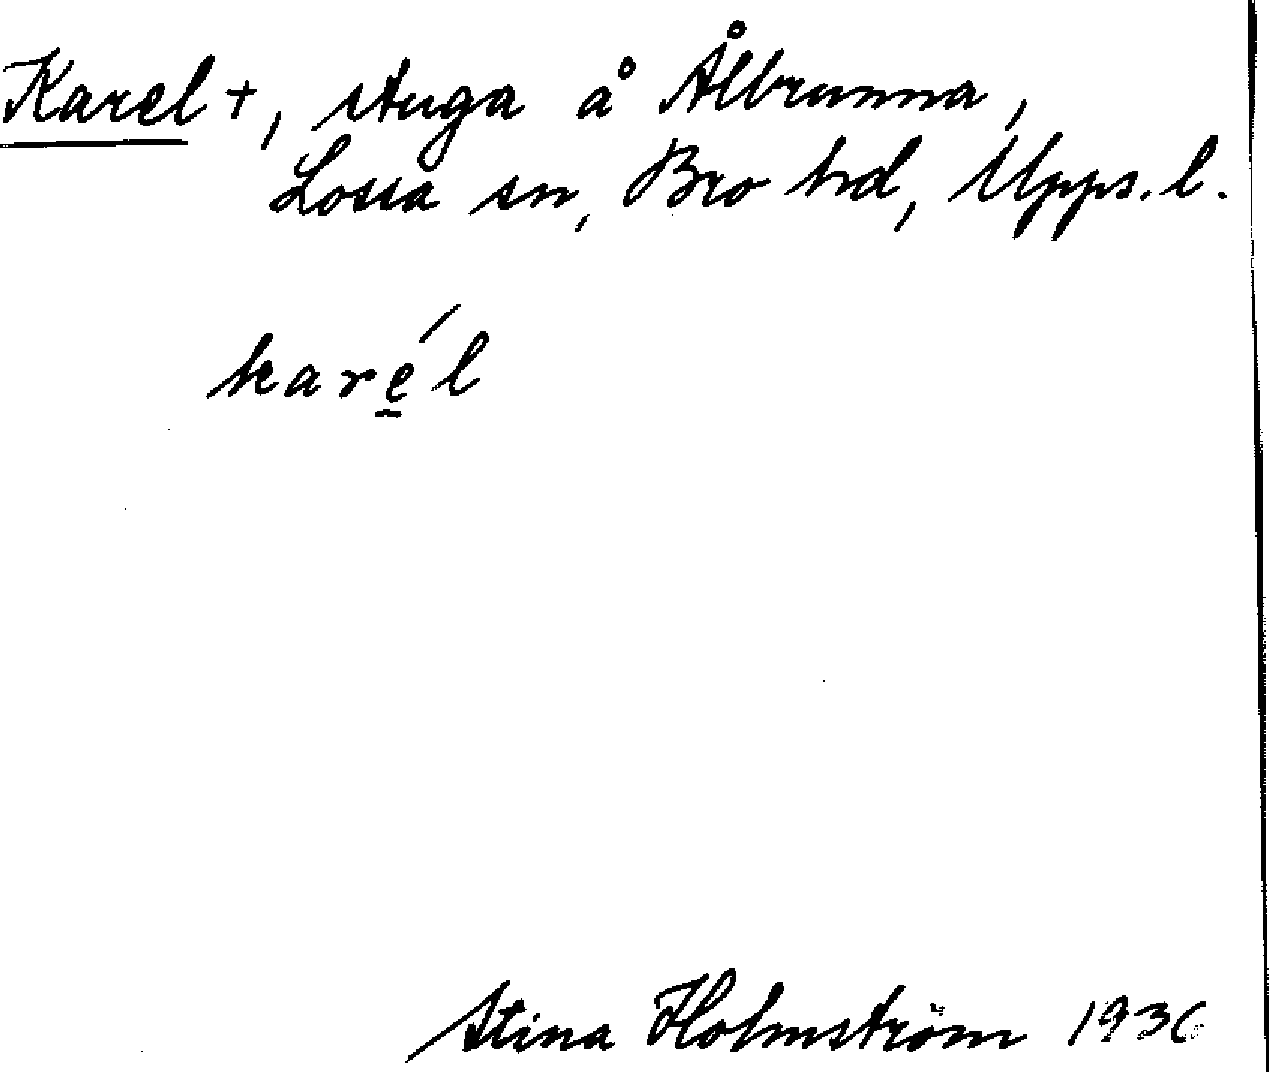 Karel +, stuga å Ålbrunna,
Lossa sn, Bro hd, Upps. l.
kare̲´l
Stina Holmström 1936